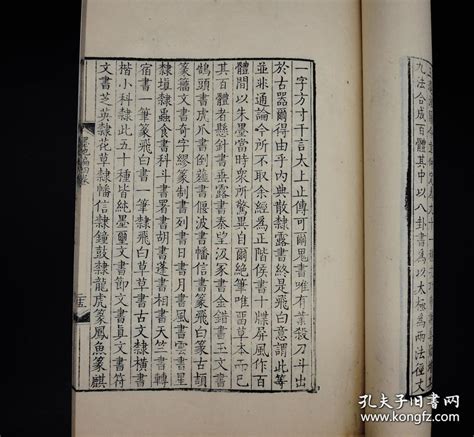 九法合成百體其中以八卦書為以太極為兩法徑丈
一字方寸千言太上止傳可爾鬼書唯有業殺刀斗出
於古器爾得由乎內典散隸露書終是飛白意謂此等
並米通論今所不取余經為正階侯書十牒屏風作百
體間以朱墨當時眾所驚異自爾絕筆唯留草本而已
其百體者懸針書垂露書秦望書汲冢書金錯書玉
鵠頭書虎爪書倒薤書偃波書幡信書篆飛白篆古頏
篆籀文書奇字繆篆制書列書日書月書風書雲書星
隸填隸蟲食書科斗書署書胡書蓬書相書天竺書轉
宿書一筆篆飛白書一筆隸飛白草草書古文隸橫書
楷小科隸此五十種皆純墨璽文書節文書真文書符
文書芝英隸花草隸幡信隸鐘鼓隸龍虎篆鳳魚篆麒
二十五
孔夫子旧书网
www.kongfz.com